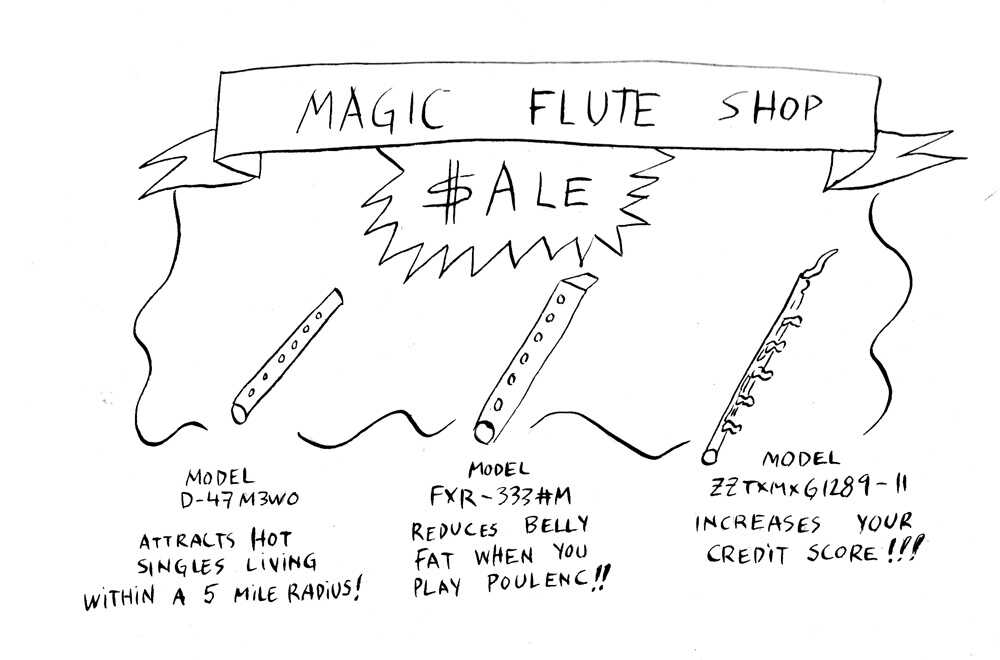 MAGIC FLUTE SHOP
$ALE
MODEL
D-47M3WO
ATTRACTS HOT
SINGLES LIVING
WITHIN A 5 MILE RADIUS!
MODEL
FXR-333#M
REDUCES BELLY
FAT WHEN YOU
PLAY POULENC!!
MODEL
ZZTXMXG1289-11
INCREASES YOUR
CREDIT SCORE!!!